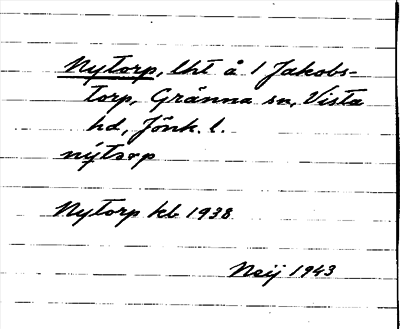 Nytorp, lht å 1 Jakobs-
torp, Gränna sn, Vista
hd, Jönk. l.
nýtorp
Nytorp kb 1938
Neij 1943